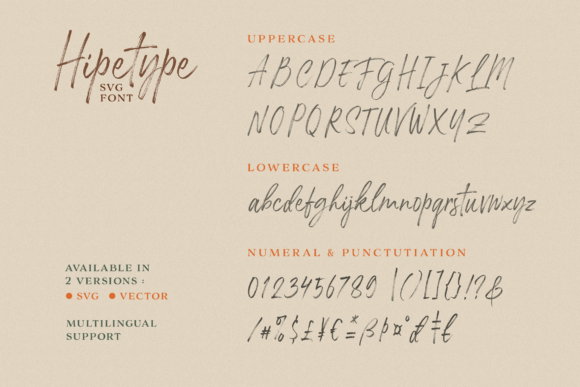 Hipetype
SVG
FONT
UPPERCASE
ABCDEFGHIJKLM
NOPQRSTUVWXYZ
LOWERCASE
abcdefghijklmnopqrstuvwxyz
NUMERAL & PUNCTUTIATION
0123456789 |()[]{}!?&
/#%$£¥€
AVAILABLE IN
2 VERSIONS :
● SVG ● VECTOR
MULTILINGUAL
SUPPORT